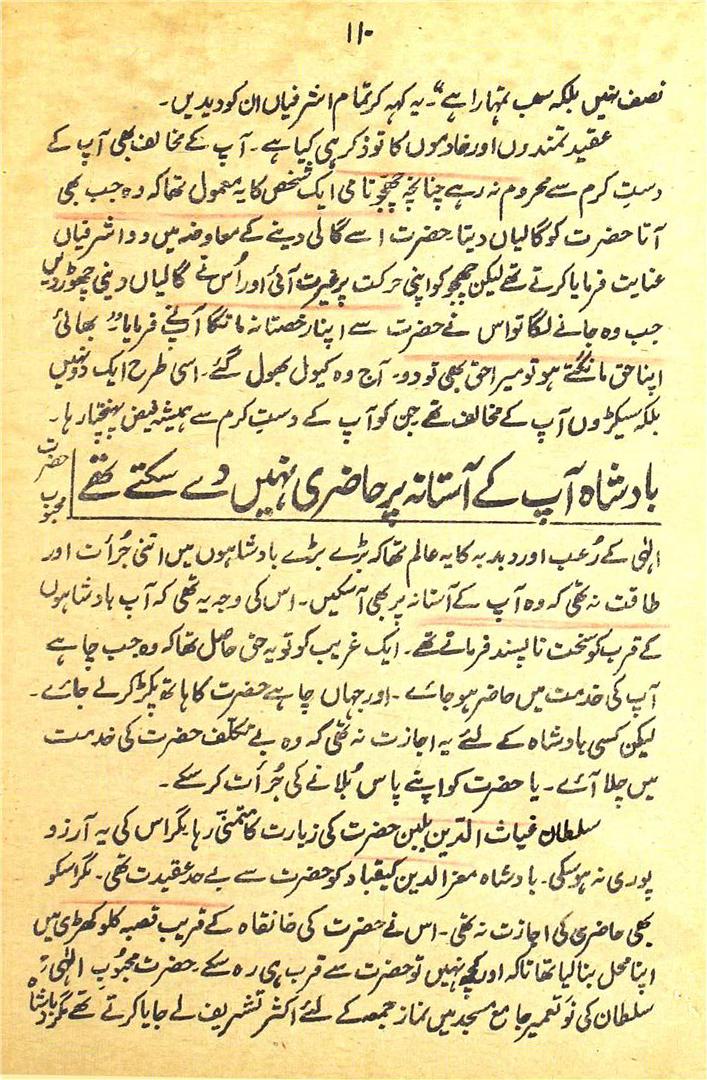 ۱۱۰
نصف نہیں بلکہ سب تمہارا ہے"۔ یہ کہہ کر تمام اشرفیاں ان کو دیدیں۔
عقیدتمندوں اور خادموں کا تو ذکر ہی کیا ہے۔ آپ کے مخالف بھی آپ کے
دستِ کرم سے محروم نہ رہے چنانچہ چھجّو نامی ایک شخص کا یہ معمول تھا کہ وہ جب بھی
آتا حضرت کو گالیاں دیتا۔ حضرت اسے گالی دینے کے معاوضہ میں دو اشرفیاں
عنایت فرمایا کرتے تھے لیکن چھجو کو اپنی حرکت پر غیرت آئی اور اُس نے گالیاں دینی چھوڑ دیں
جب وہ جانے لگا تو اس نے حضرت سے اپنا رخصتانہ مانگا آپ نے فرمایا "بھائی
اپنا حق مانگتے ہو تو میرا حق بھی تو دو۔ آج وہ کیوں بھول گئے۔ اسی طرح ایک دو نہیں
بلکہ سیکڑوں آپ کے مخالف تھے جن کو آپ کے دستِ کرم سے ہمیشہ فیض پہنچتا رہا۔
بادشاہ آپ کے آستانہ پر حاضری نہیں دے سکتے تھے
حضرت محبوب
الٰہی کے رُعب اور دبدبہ کا یہ عالم تھا کہ بڑے بڑے بادشاہوں میں اتنی جُرأت اور
طاقت نہ تھی کہ وہ آپ کے آستانہ پر بھی آسکیں۔ اس کی وجہ یہ تھی کہ آپ بادشاہوں
کے قرب کو سخت ناپسند فرماتے تھے۔ ایک غریب کو تو یہ حق حاصل تھا کہ وہ جب چاہے
آپ کی خدمت میں حاضر ہو جائے۔ اور جہاں چاہے حضرت کا ہاتھ پکڑ کر لے جائے۔
لیکن کسی بادشاہ کے لئے یہ اجازت نہ تھی کہ وہ بے تکلّف حضرت کی خدمت
میں چلا آئے۔ یا حضرت کو اپنے پاس بُلانے کی جُرأت کر سکے۔
سلطان غیاث الدین بلبن حضرت کی زیارت کا متمنّی رہا۔ مگر اس کی یہ آرزو
پوری نہ ہو سکی۔ بادشاہ معز الدین کیقباد کو حضرت سے بے حد عقیدت تھی۔ مگر اسکو
بھی حاضری کی اجازت نہ تھی۔ اس نے حضرت کی خانقاہ کے قریب قصبہ کلوکھڑی میں
اپنا محل بنا لیا تھا تاکہ اور کچھ نہیں تو حضرت سے قرب ہی رہ سکے۔ حضرت محبُوب الٰہیؒ
سلطان کی نو تعمیر جامع مسجد میں نماز جمعہ کے لئے اکثر تشریف لے جایا کرتے تھے مگر بادشاہ